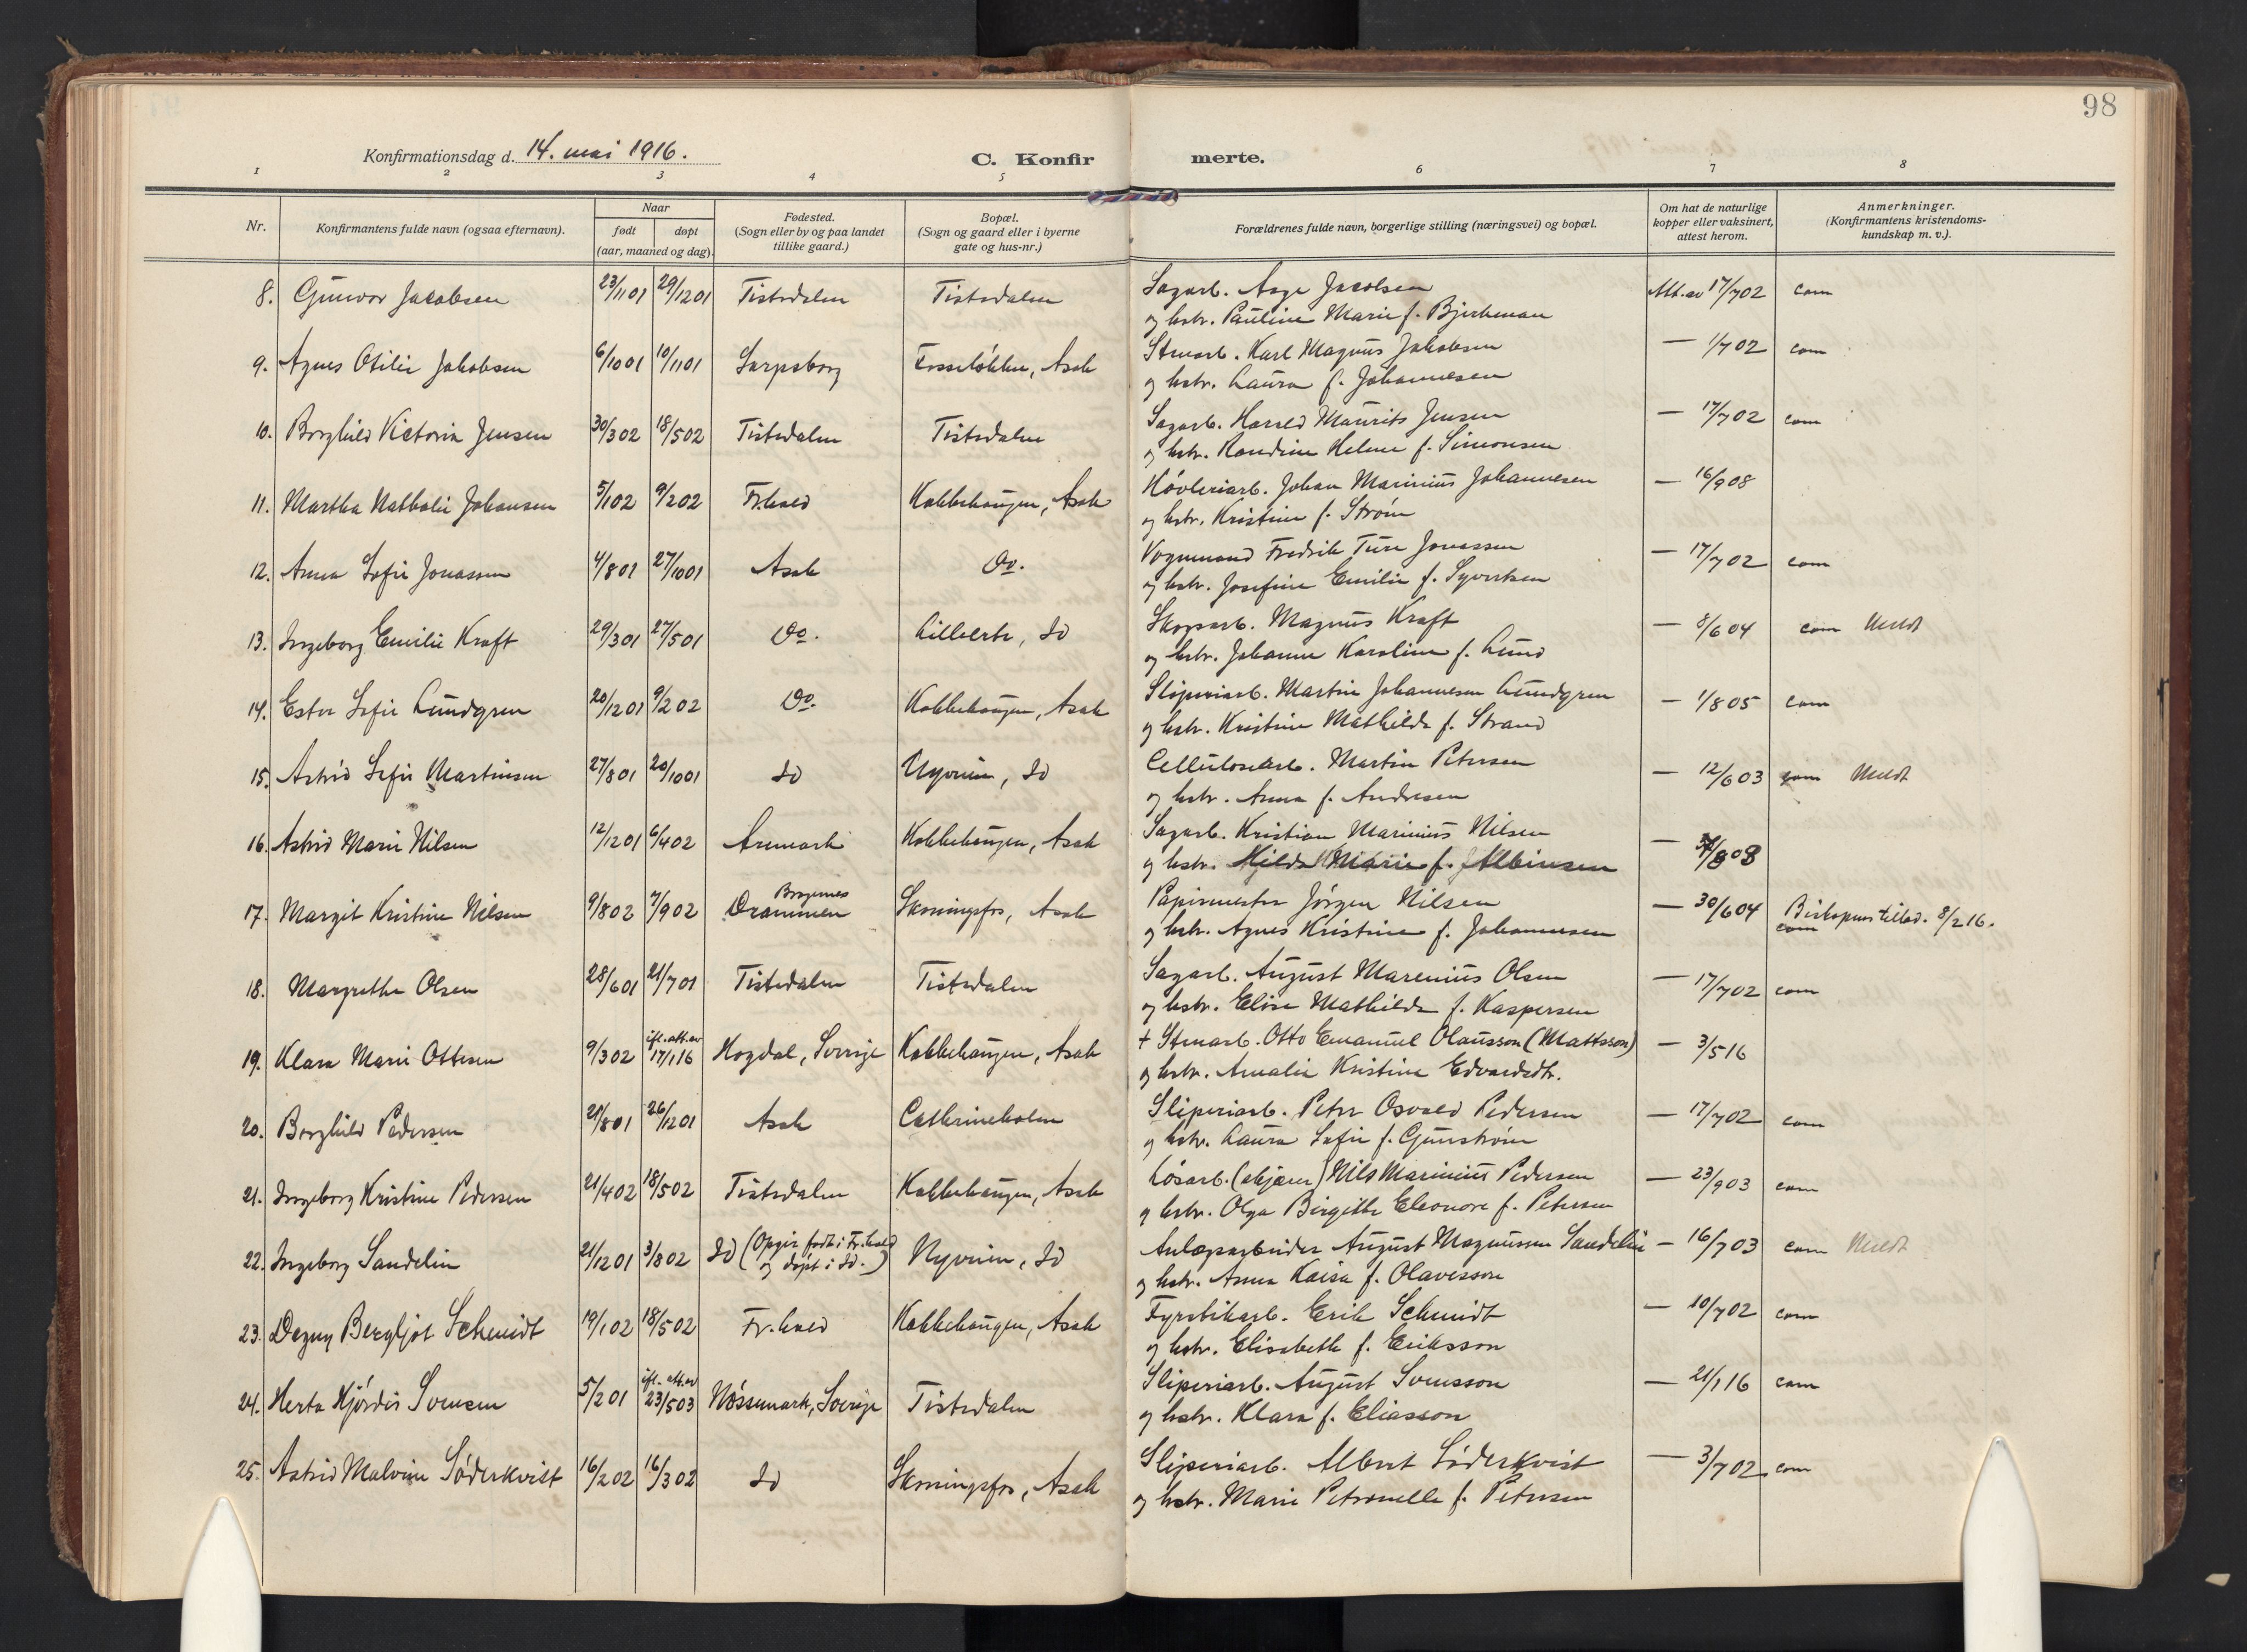 98
Konfirmationsdag d. 14. mai 1916.
C. Konfirmerte.
1 2 3 4 5 6 7 8
Nr.
Konfirmantens fulde navn (ogsaa efternavn).
Naar
født døpt
(aar, maaned og dag).
Fødested.
(Sogn eller by og paa landet
tillike gaard.)
Bopæl.
(Sogn og gaard eller i byerne
gate og hus-nr.)
Forældrenes fulde navn, borgerlige stilling (næringsvei) og bopæl.
Om hat de naturlige
kopper eller vaksinert,
attest herom.
Anmerkninger.
(Konfirmantens kristendoms-
kundskap m. v.).
8. Gunvor Jacobsen 23/1101 29/1201 Tistedalen Tistedalen Sagarb. Aage Jacobsen Att. av 17/702 com
og hstr. Pauline Marie f. Bjerkman
9. Agnes Otilie Jakobsen 6/1001 10/1101 Sarpsborg Fosseløkken, Asak Stenarb. Karl Magnus Jakobsen — 1/702 com
og hstr. Laura f. Johannesen
10. Borghild Victoria Jensen 30/302 18/502 Tistedalen Tistedalen Sagarb. Harald Maurits Jensen — 17/702 com
og hstr. Randine Helene f. Simonsen
11. Martha Nathalie Johansen 5/102 9/202 Fr.hald Kobbehaugen, Asak Høvleriarb. Johan Marinius Johannesen — 16/908
og hstr. Kristine f. Strøm
12. Anna Sofie Jonassen 4/801 27/1001 Asak Do. Vognmand Fredrik Ture Jonassen — 17/702 com
og hstr. Josefine Emilie f. Syvertsen
13. Ingeborg Emilie Kraft 29/301 27/501 Do. Lilleerte, Id Skogsarb. Magnus Kraft — 8/604 com Meldt
og hstr. Johanne Karoline f. Lund
14. Ester Sofie Lundgren 20/1201 9/202 Do. Kobbehaugen, Asak Sliperiarb. Martin Johannesen Lundgren — 1/805 com
og hstr. Kristine Mathilde f. Strand
15. Astrid Sofie Martinsen 27/801 20/1001 Id Nyveien, Id Cellulosearb. Martin Petersen — 12/603 com Meldt
og hstr. Anna f. Andresen
16. Astrid Marie Nilsen 12/1201 6/402 Aremark Kobbehaugen, Asak Sagarb. Kristian Marinius Nilsen — /808
og hstr. Hilda Marie f. Albinsen
17. Margit Kristine Nilsen 9/802 7/902 Bragernes Drammen Skonningsfos, Asak Papirmester Jørgen Nilsen — 30/604 Biskopens tillad. 8/216.
og hstr. Agnes Kristine f. Johannesen com
18. Margrethe Olsen 28/601 21/701 Tistedalen Tistedalen Sagarb. August Marenius Olsen — 17/702 com
og hstr. Elise Mathilde f. Kaspersen
19. Klara Marie Ottesen 9/302 ifl. att. av 17/116 Hogdal, Sverige Kobbehaugen, Asak + Stenarb. Otto Emanuel Olausson (Mattsson) — 3/516
og hstr. Amalie Kristine Edvardsdtr.
20. Borghild Pedersen 21/801 26/1201 Asak Cathrineholm Sliperiarb. Peter Osvald Pedersen — 17/702 com
og hstr. Laura Sofie f. Gunstrøm
21. Ingeborg Kristine Pedersen 21/402 18/502 Tistedalen Kobbehaugen, Asak Løsarb. (skjærer) Nils Marinius Pedersen — 23/903 com
og hstr. Olga Birgitte Eleonore f. Petersen
22. Ingeborg Sandelin 21/1201 3/802 Id (Opgir født i Fr.hald og døpt i Id.) Nyveien, Id Anlægsarbeider August Magnussen Sandelin — 16/703 com Meldt
og hstr. Anna Kaisa f. Olavesson
23. Dagny Bergljot Schmidt 19/102 18/502 Fr.hald Kobbehaugen, Asak Fyrstikarb. Erik Schmidt — 10/702 com
og hstr. Elisabeth f. Eriksson
24. Herta Hjørdis Svensen 5/201 ifl. att. av 23/503 Nøssemark, Sverige Tistedalen Sliperiarb. August Svensson — 21/116 com
og hstr. Klara f. Eliasson
25. Astrid Malvine Söderkvist 16/202 16/302 Id Skonningsfos, Asak Sliperiarb. Albert Söderkvist — 3/702 com
og hstr. Marie Petronelle f. Petersen